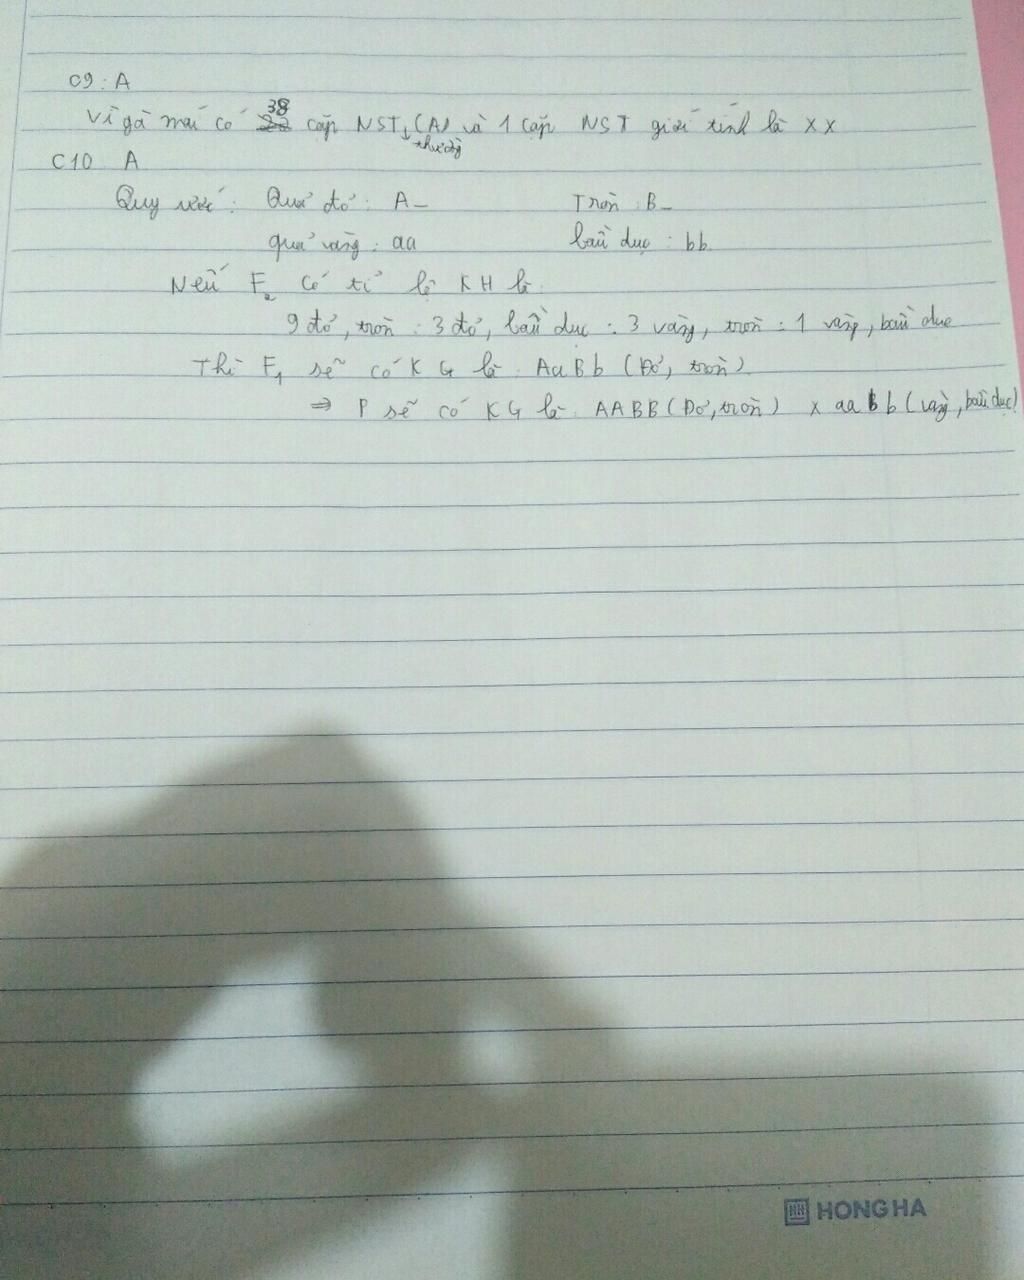 C9: A
Vì gà mái có 38 cặp NST (A) và 1 cặp NST giới tính là XX
thường
C10 A
Quy ước: Quả đỏ: A_ Tròn: B_
quả vàng: aa bầu dục: bb.
Nếu F2 có tỉ lệ KH là
9 đỏ, tròn : 3 đỏ, bầu dục : 3 vàng, tròn : 1 vàng, bầu dục
Thì F1 sẽ có KG là AaBb (Đỏ, tròn)
⇒ P sẽ có KG là AABB (Đỏ, tròn) x aabb (vàng, bầu dục)
HH HONG HA